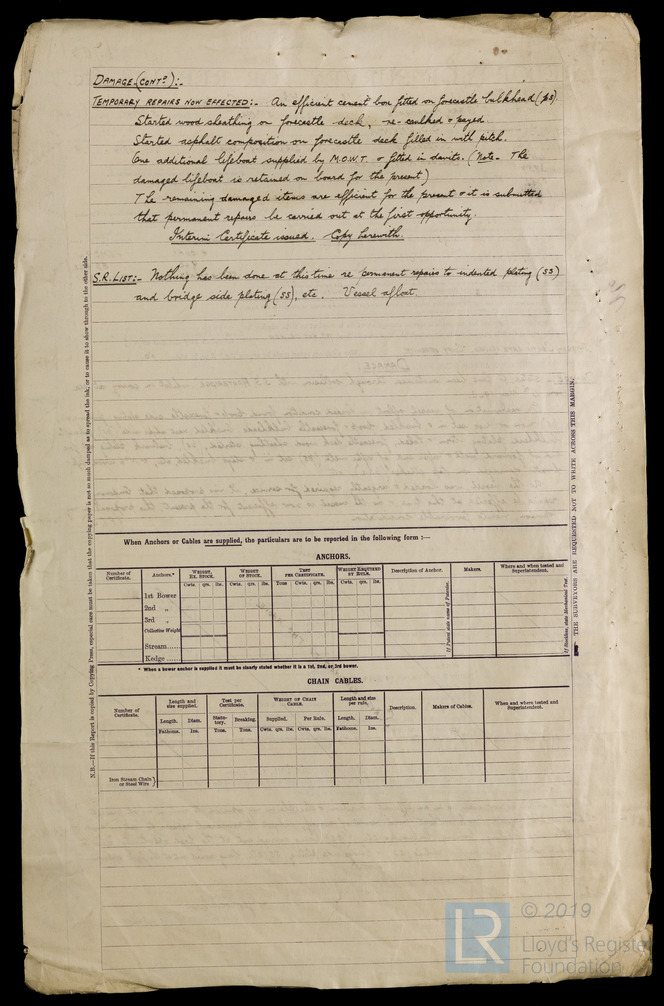 DAMAGE (CONTD):-
TEMPORARY REPAIRS NOW EFFECTED:- An efficient cement box fitted on forecastle bulkhead (ps).
Started wood sheathing on forecastle deck, re-caulked & payed
Started asphalt composition on forecastle deck filled in with pitch.
One additional lifeboat supplied by M.O.W.T. & fitted in davits. (Note - The
damaged lifeboat is retained on board for the present)
The remaining damaged items are efficient for the present & it is submitted
that permanent repairs be carried out at the first opportunity.
Interim Certificate issued. Copy herewith.
S.R. LIST:- Nothing has been done at this time re permanent repairs to indented plating (SS)
and bridge side plating (SS), etc. Vessel afloat.
N.B.—If this Report is copied by Copying Press, especial care must be taken that the copying paper is not so much damped as to spread the ink, or to cause it to show through to the other side.
THE SURVEYORS ARE REQUESTED NOT TO WRITE ACROSS THIS MARGIN.
When Anchors or Cables are supplied, the particulars are to be reported in the following form :—
ANCHORS.
Number of Certificate. Anchors.* WEIGHT, EX. STOCK. WEIGHT OF STOCK. TEST PER CERTIFICATE. WEIGHT REQUIRED BY RULE. Description of Anchor. Makers. Where and when tested and Superintendent.
Cwts. qrs. lbs. Cwts. qrs. lbs. Tons cwts. qrs. lbs. Cwts. qrs. lbs.
1st Bower
2nd „
3rd „
Collective Weight
Stream......
Kedge ......
If Patent state name of Patentee.
If Stockless, state Mechanical Test.
* When a bower anchor is supplied it must be clearly stated whether it is a 1st, 2nd, or 3rd bower.
CHAIN CABLES.
Number of Certificate. Length and size supplied. Test per Certificate. WEIGHT OF CHAIN CABLE. Length and size per rule. Description. Makers of Cables. When and where tested and Superintendent.
Length. Diam. Statutory. Breaking. Supplied. Per Rule. Length. Diam.
Fathoms. Ins. Tons. Tons. Cwts. qrs. lbs. Cwts. qrs. lbs. Fathoms. Ins.
Iron Stream Chain
or Steel Wire
© 2019
LR
Lloyd's Registe
Foundation